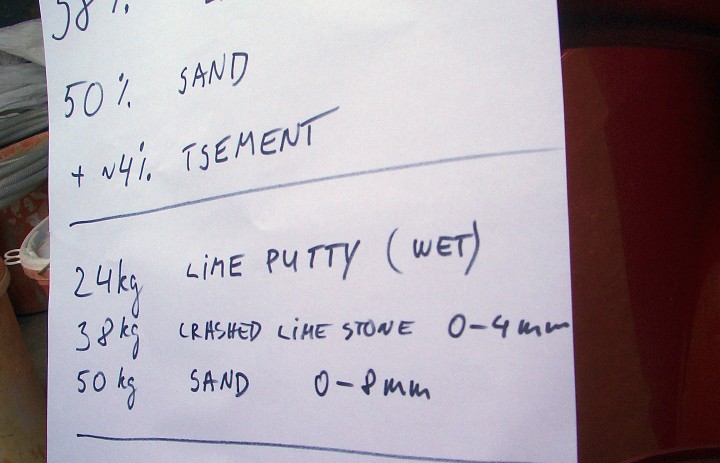 38%
50% SAND
+ ~4%. TSEMENT
24kg LIME PUTTY (WET)
38kg CRASHED LIME STONE 0-4mm
50kg SAND 0-8mm